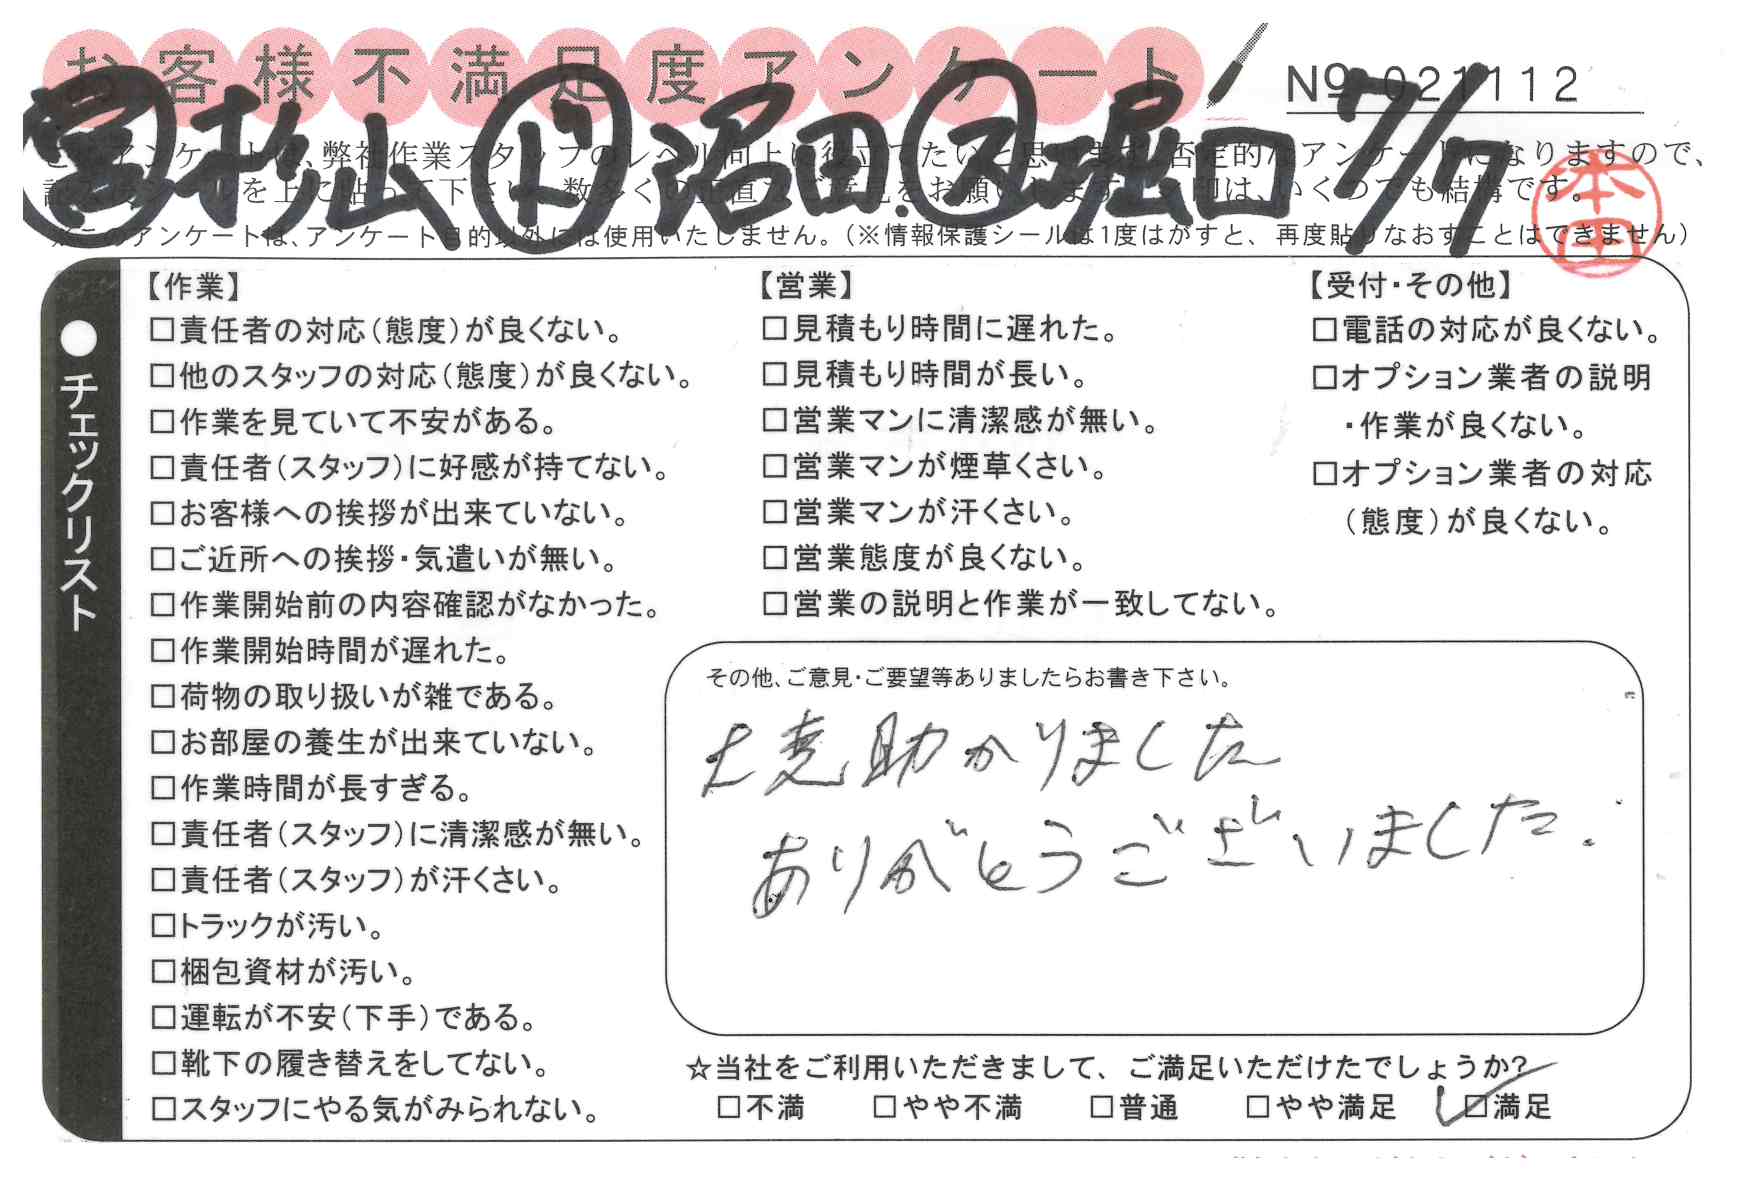 お客様不満足度アンケート
№ 021112
営 杉山 ド 沼田.ス 堀口 7/7
本田
※このアンケートは、アンケート目的以外には使用いたしません。（※情報保護シールは1度はがすと、再度貼りなおすことはできません）
●チェックリスト
【作業】
□責任者の対応（態度）が良くない。
□他のスタッフの対応（態度）が良くない。
□作業を見ていて不安がある。
□責任者（スタッフ）に好感が持てない。
□お客様への挨拶が出来ていない。
□ご近所への挨拶・気遣いが無い。
□作業開始前の内容確認がなかった。
□作業開始時間が遅れた。
□荷物の取り扱いが雑である。
□お部屋の養生が出来ていない。
□作業時間が長すぎる。
□責任者（スタッフ）に清潔感が無い。
□責任者（スタッフ）が汗くさい。
□トラックが汚い。
□梱包資材が汚い。
□運転が不安（下手）である。
□靴下の履き替えをしてない。
□スタッフにやる気がみられない。
【営業】
□見積もり時間に遅れた。
□見積もり時間が長い。
□営業マンに清潔感が無い。
□営業マンが煙草くさい。
□営業マンが汗くさい。
□営業態度が良くない。
□営業の説明と作業が一致してない。
【受付・その他】
□電話の対応が良くない。
□オプション業者の説明
・作業が良くない。
□オプション業者の対応
（態度）が良くない。
その他、ご意見・ご要望等ありましたらお書き下さい。
大変助かりました
ありがとうございました.
☆当社をご利用いただきまして、ご満足いただけたでしょうか?
□不満 □やや不満 □普通 □やや満足 ☑満足